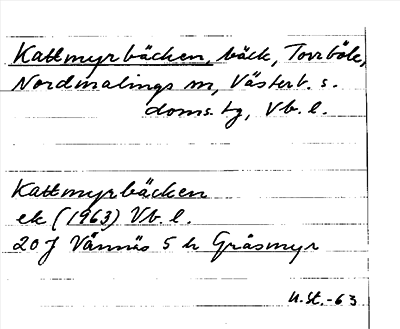 Kattmyrbäcken, bäck, Torrböle,
Nordmalings sn, Västerb. s.
doms. tg, Vb. l.
Kattmyrbäcken
ek (1963) Vb. l.
20 J Vännäs 5 h Gråsmyr
U.St.-63